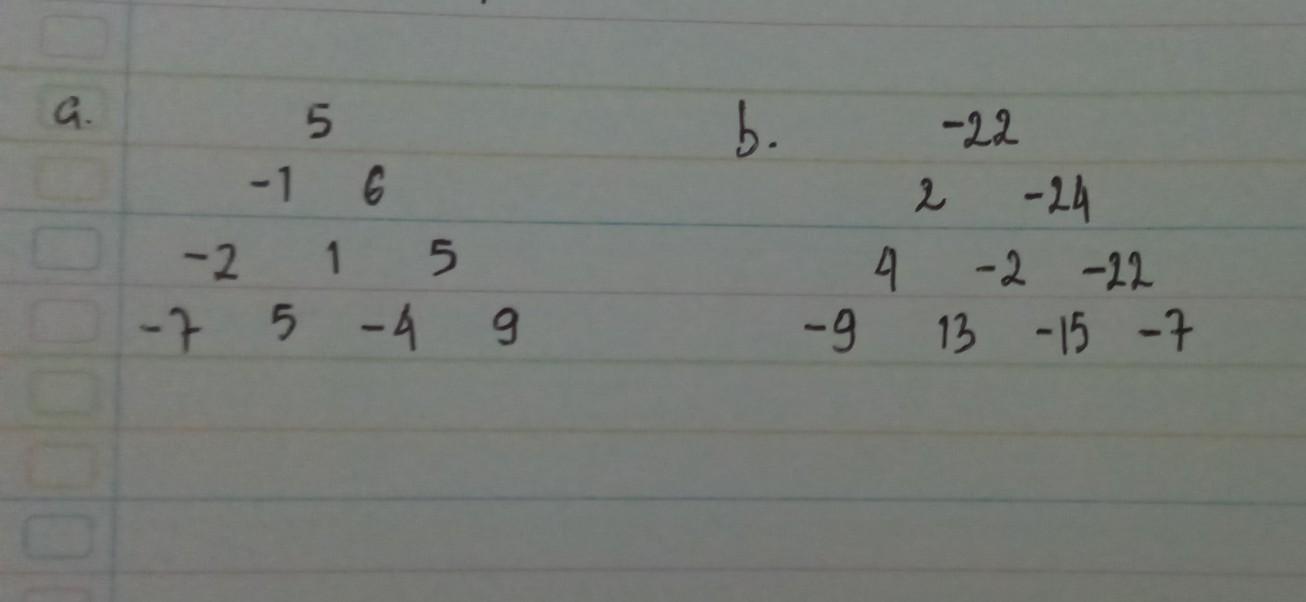 a. 5 b. -22
-1 6 2 -24
-2 1 5 4 -2 -22
-7 5 -4 9 -9 13 -15 -7